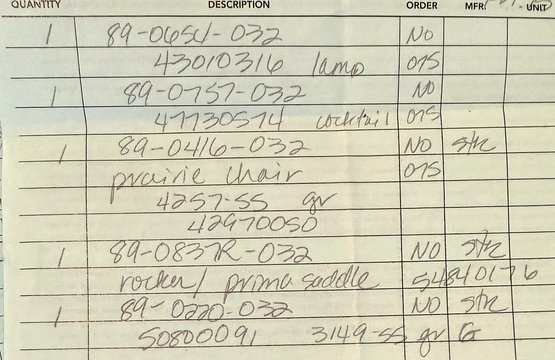 QUANTITY DESCRIPTION ORDER MFR. UNIT
1 89-0654-032 NO
43010316 lamp 075
1 89-0757-032 NO
47730574 cocktail 075
1 89-0416-032 NO stk
prairie chair 075
4257-55 gr
42970050
1 89-0837R-032 NO stk
rocker/ prima saddle 54840176
1 89-0220-032 NO stk
50800091 3149-55 gr G